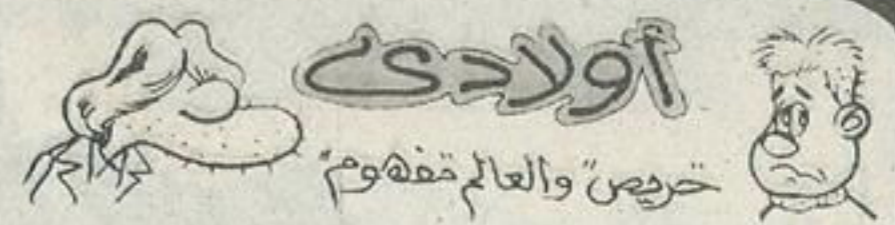 أولادى
"حريص" والعالم "مفهوم"